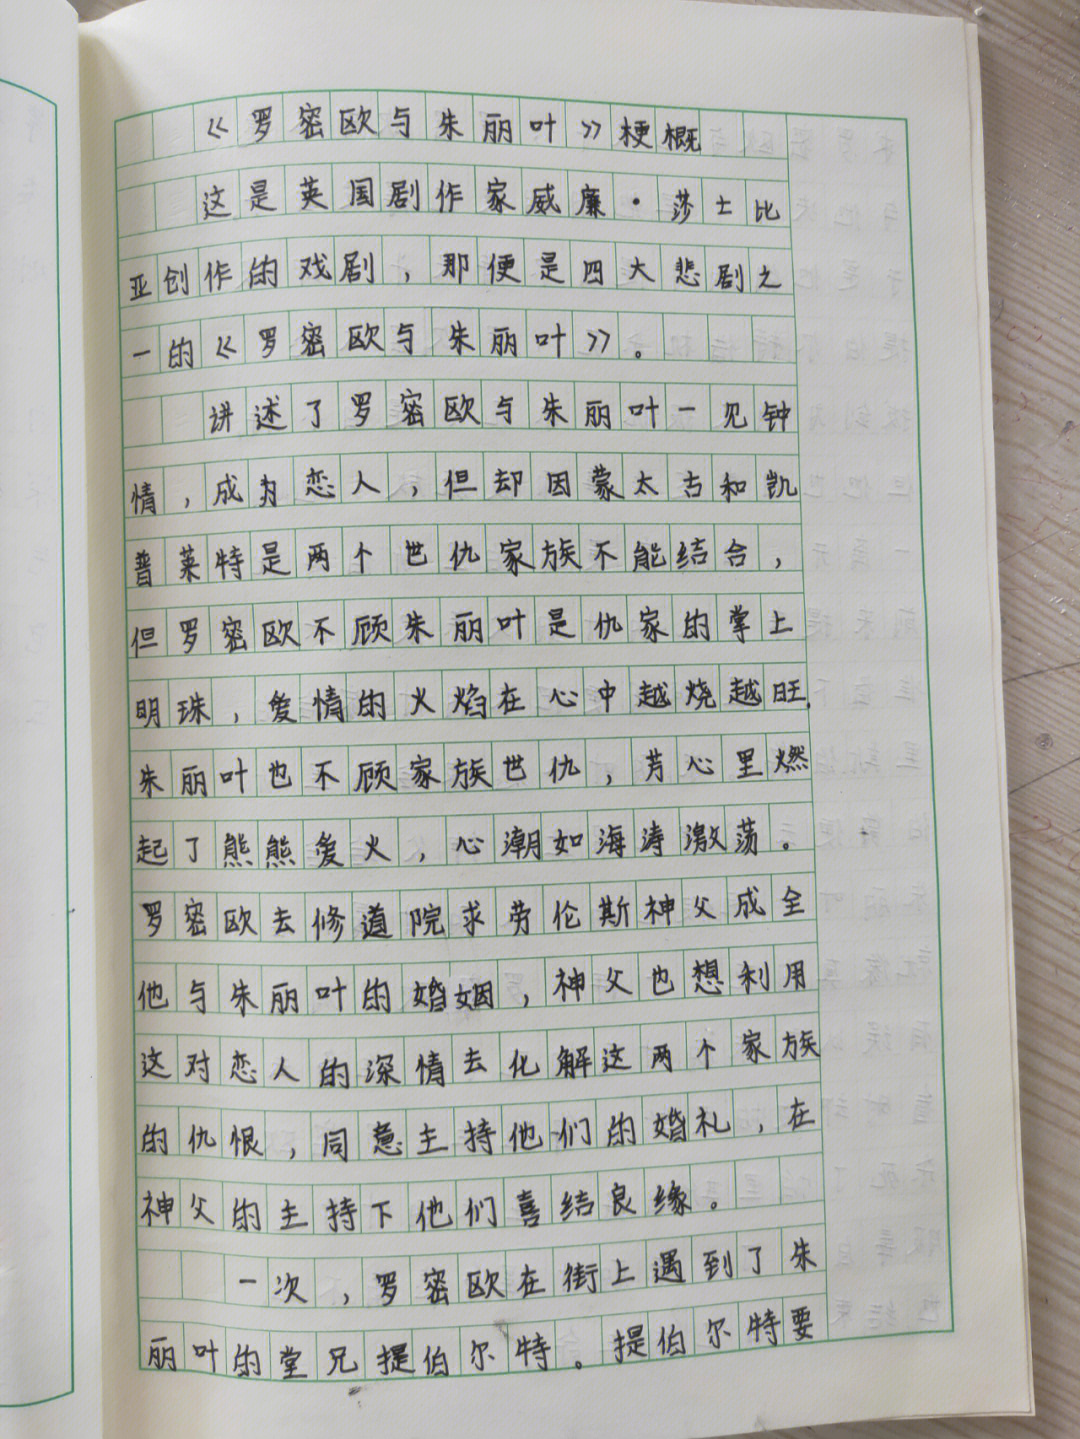 《罗密欧与朱丽叶》梗概
这是英国剧作家威廉·莎士比
亚创作的戏剧，那便是四大悲剧之
一的《罗密欧与朱丽叶》。
讲述了罗密欧与朱丽叶一见钟
情，成为恋人，但却因蒙太古和凯
普莱特是两个世仇家族不能结合，
但罗密欧不顾朱丽叶是仇家的掌上
明珠，爱情的火焰在心中越烧越旺.
朱丽叶也不顾家族世仇，芳心里燃
起了熊熊爱火，心潮如海涛激荡。
罗密欧去修道院求劳伦斯神父成全
他与朱丽叶的婚姻，神父也想利用
这对恋人的深情去化解这两个家族
的仇恨，同意主持他们的婚礼，在
神父的主持下他们喜结良缘。
一次，罗密欧在街上遇到了朱
丽叶的堂兄提伯尔特。提伯尔特要